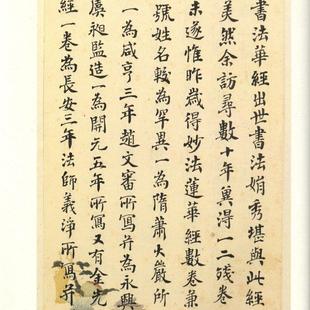 書法華經出世書法娟秀堪與此經
美然余訪尋數十年異得一二殘卷
未遂惟昨歲得妙法蓮華經數卷兼
號姓名較為罕異一為隋蕭大嚴所
一為咸亨三年趙文審所寫并為永興
虞昶監造一為開元五年所寫又有金光
經一卷為長安三年法師義淨所寫并